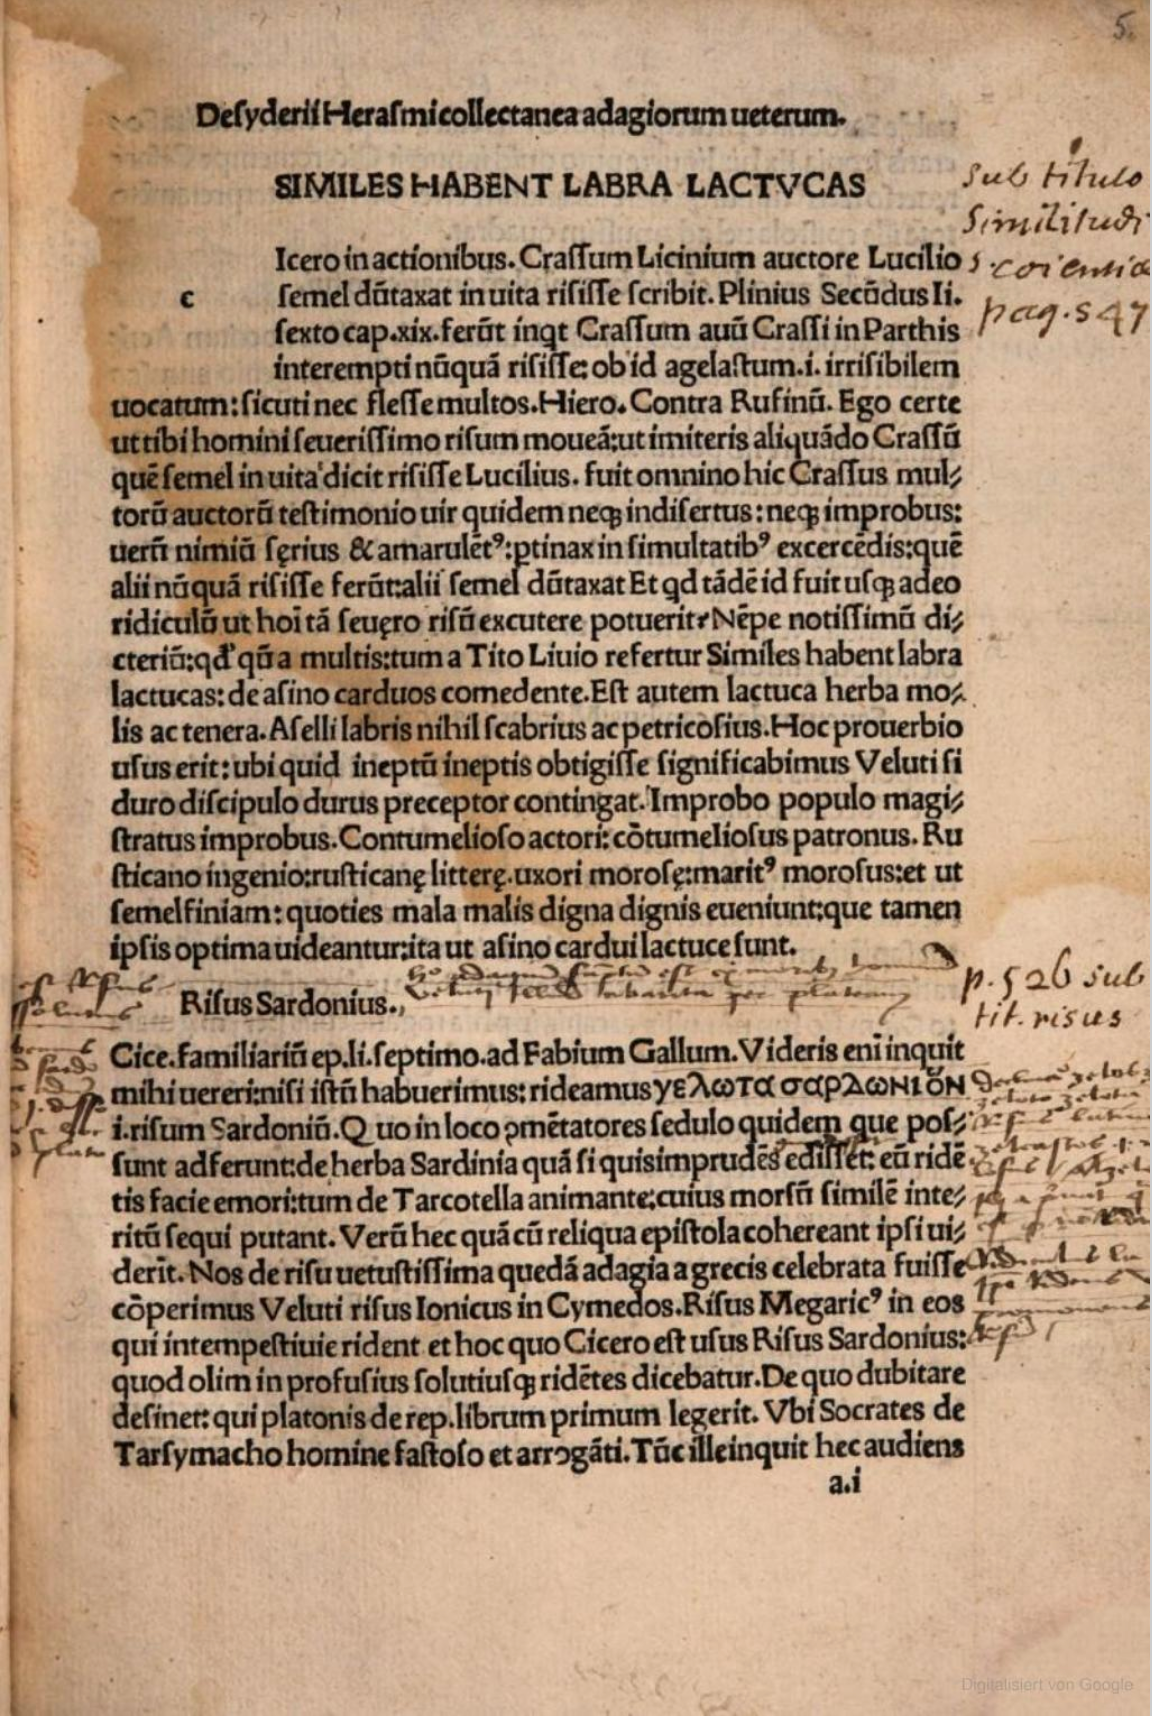 5.
Deſyderii Heraſmi collectanea adagiorum ueterum.
SIMILES HABENT LABRA LACTVCAS
Icero in actionibus. Craſſum Licinium auctore Lucilio
c ſemel dūtaxat in uita riſiſſe ſcribit. Plinius Secūdus li.
ſexto cap.xix. ferūt inqt Craſſum auū Craſſi in Parthis
interempti nūquā riſiſſe: ob id agelaſtum.i. irriſibilem
uocatum: ſicuti nec fleſſe multos. Hiero. Contra Rufinū. Ego certe
ut tibi homini ſeueriſſimo riſum moueā: ut imiteris aliquādo Craſſū
quē ſemel in uita dicit riſiſſe Lucilius. fuit omnino hic Craſſus mul⸗
torū auctorū teſtimonio uir quidem neqꝫ indiſertus: neqꝫ improbus:
uerū nimiū ſęrius & amarulētꝰ: ꝑtinax in ſimultatibꝰ excercēdis: quē
alii nūquā riſiſſe ferūt: alii ſemel dūtaxat Et qd tādē id fuit uſqꝫ adeo
ridiculū ut hoi tā ſeuęro riſū excutere potuerit? Nēpe notiſſimū di⸗
cteriū: qd̛ qū a multis: tum a Tito Liuio refertur Similes habent labra
lactucas: de aſino carduos comedente. Eſt autem lactuca herba mo⸗
lis ac tenera. Aſelli labris nihil ſcabrius ac petricoſius. Hoc prouerbio
uſus erit: ubi quid ineptū ineptis obtigiſſe ſignificabimus Veluti ſi
duro diſcipulo durus preceptor contingat. Improbo populo magi⸗
ſtratus improbus. Contumelioſo actori: cōtumelioſus patronus. Ru
ſticano ingenio: ruſticanę litterę. uxori moroſę: maritꝰ moroſus: et ut
ſemel finiam: quoties mala malis digna dignis eueniunt: que tamen
ipſis optima uideantur: ita ut aſino cardui lactuce ſunt.
Riſus Sardonius.
Cice. familiariū ep. li. ſeptimo. ad Fabium Gallum. Videris enī inquit
mihi uereri: niſi iſtū habuerimus: rideamus γελωτα σαρΔωΝΙΟΝ
i. riſum Sardoniū. Quo in loco ꝯmētatores ſedulo quidem que poſ⸗
ſunt adferunt: de herba Sardinia quā ſi quis imprudēs ediſſet: eū ridē
tis facie emori: tum de Tarcotella animante: cuius morſū ſimilē inte⸗
ritū ſequi putant. Verū hec quā cū reliqua epiſtola cohereant ipſi ui⸗
derīt. Nos de riſu uetuſtiſſima quedā adagia a grecis celebrata fuiſſe
cōperimus Veluti riſus Ionicus in Cymedos. Riſus Megaricꝰ in eos
qui intempeſtiuie rident et hoc quo Cicero eſt uſus Riſus Sardonius:
quod olim in profuſius ſolutiuſqꝫ ridētes dicebatur. De quo dubitare
deſinet: qui platonis de rep. librum primum legerit. Vbi Socrates de
Tarſymacho homine faſtoſo et arrogāti. Tūc ille inquit hec audiens
a.i
sub titulo
Similitudi
s.
pag. 547
p. 526 sub
tit. risus
Digitalisiert von Google